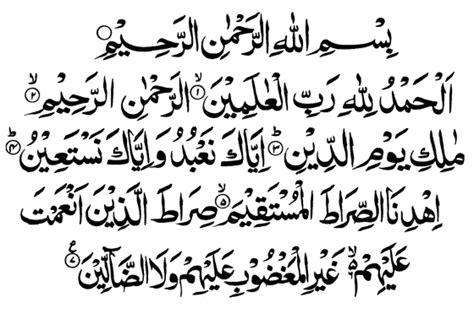 بِسْمِ اللهِ الرَّحْمٰنِ الرَّحِيْمِ
اَلْحَمْدُ لِلهِ رَبِّ الْعٰلَمِيْنَ ۙ۱ الرَّحْمٰنِ الرَّحِيْمِ ۙ۲
مٰلِكِ يَوْمِ الدِّيْنِ ؕ۳ اِيَّاكَ نَعْبُدُ وَاِيَّاكَ نَسْتَعِيْنُ ؕ۴
اِهْدِنَا الصِّرَاطَ الْمُسْتَقِيْمَ ۙ۵ صِرَاطَ الَّذِيْنَ اَنْعَمْتَ
عَلَيْهِمْ ۙ۬۶ غَيْرِ الْمَغْضُوْبِ عَلَيْهِمْ وَلَا الضَّآلِّيْنَ ۷ ع